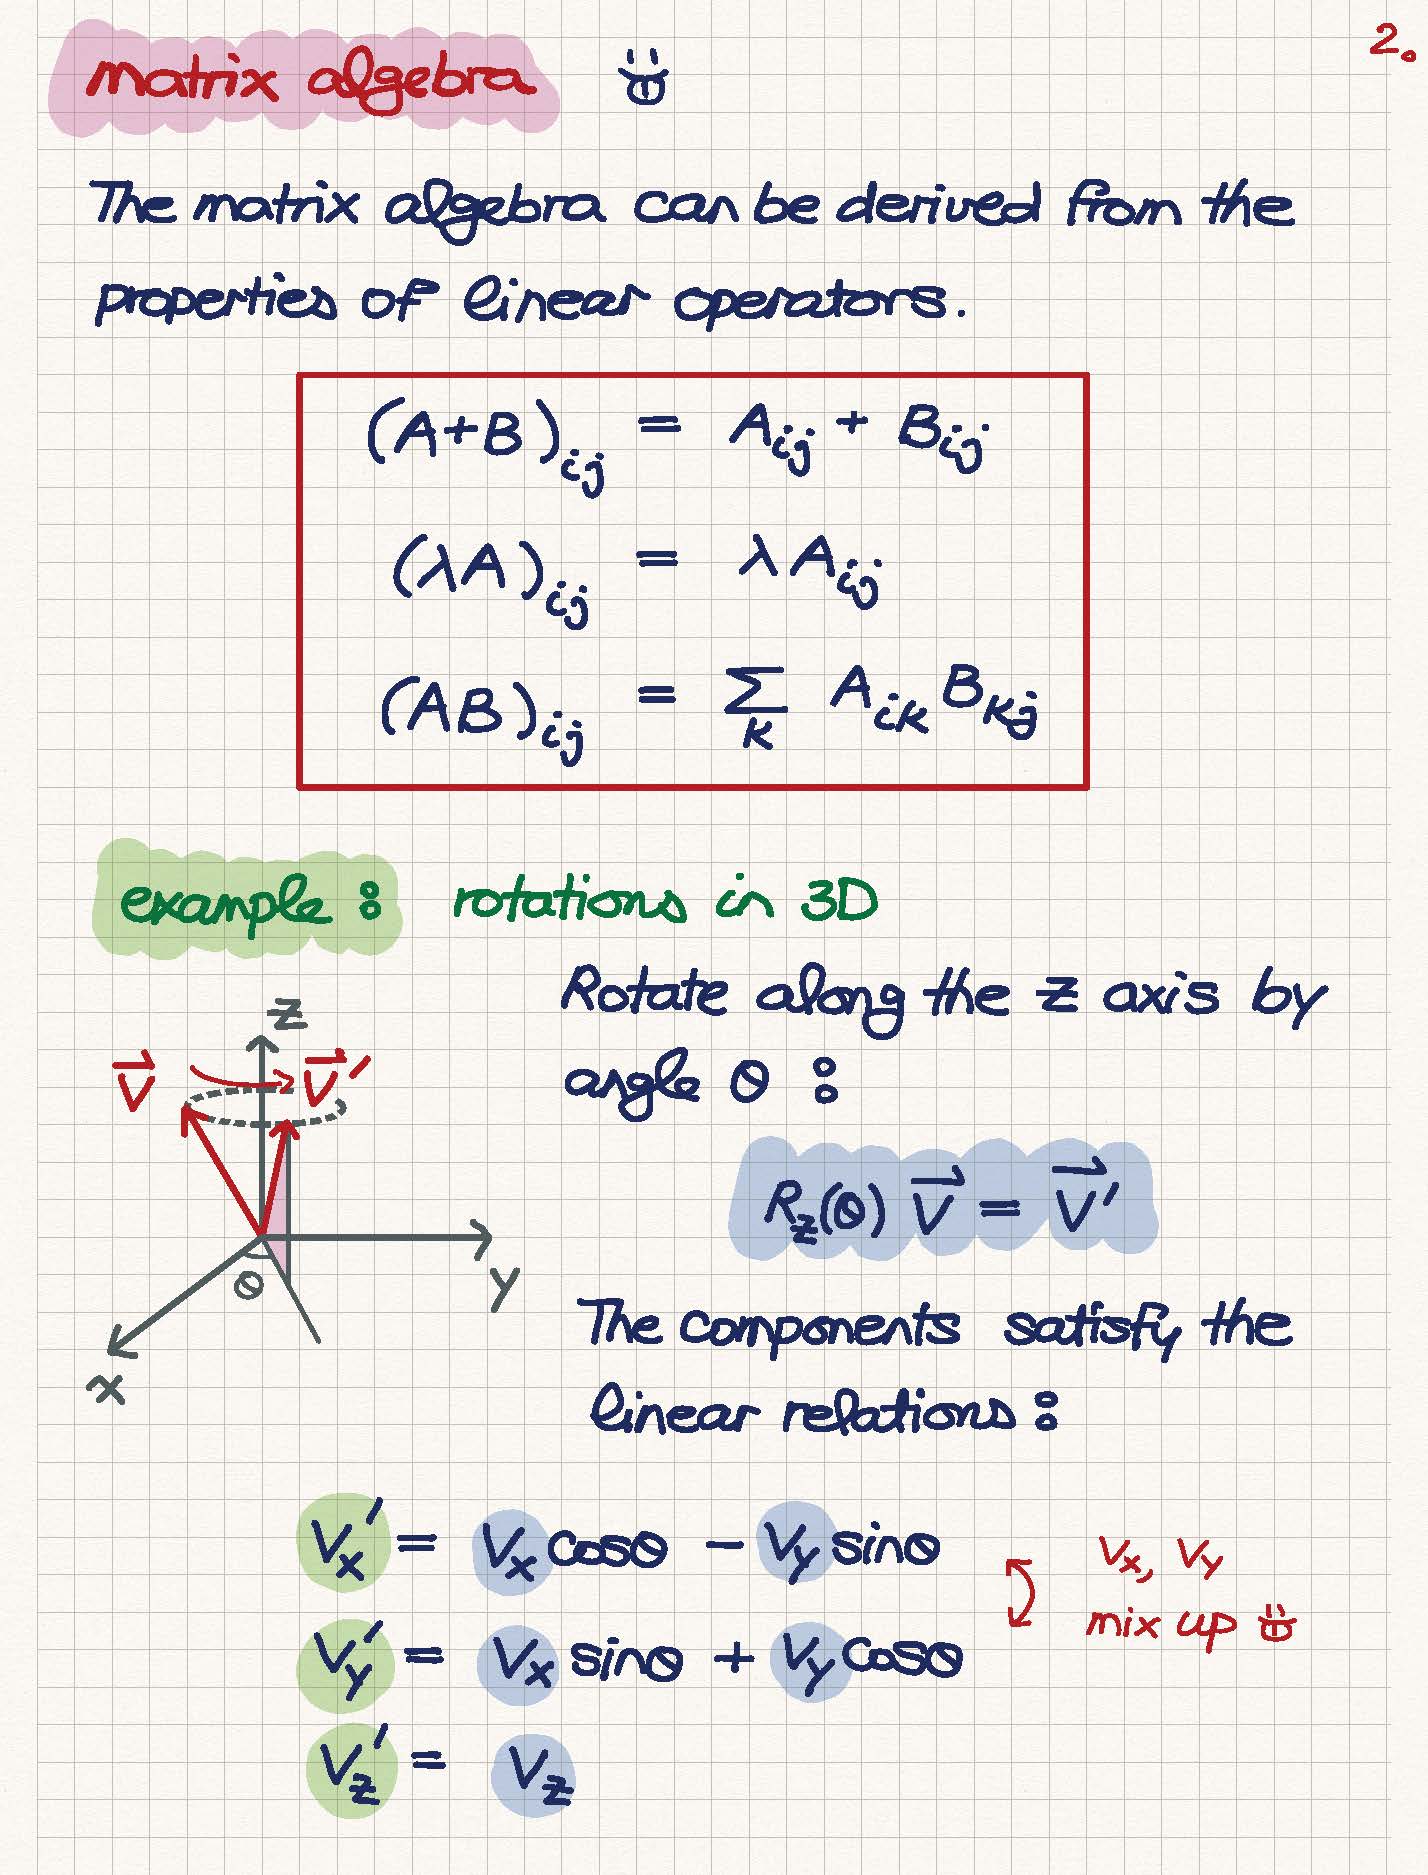 2.
matrix algebra
The matrix algebra can be derived from the
properties of linear operators.
(A+B)ij = Aij + Bij
(λA)ij = λAij
(AB)ij = Σk Aik Bkj
example: rotations in 3D
Rotate along the z axis by
angle θ:
z
V⃗ V⃗′
y
θ
x
Rz(θ) V⃗ = V⃗′
The components satisfy the
linear relations:
Vx′ = Vx cosθ − Vy sinθ
Vy′ = Vx sinθ + Vy cosθ
Vz′ = Vz
Vx, Vy
mix up